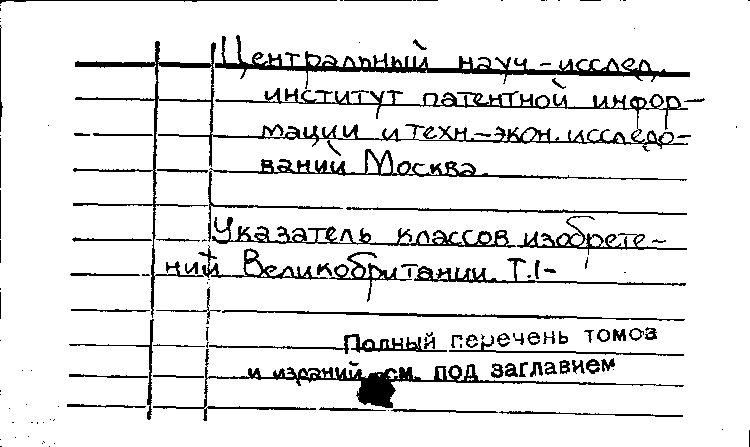 Центральный науч-исслед.
институт патентной инфор-
мации и техн.-экон. исследо-
ваний Москва.
Указатель классов изобрете-
ний Великобритании. Т.1-
Полный перечень томов
и изданий см. под заглавием